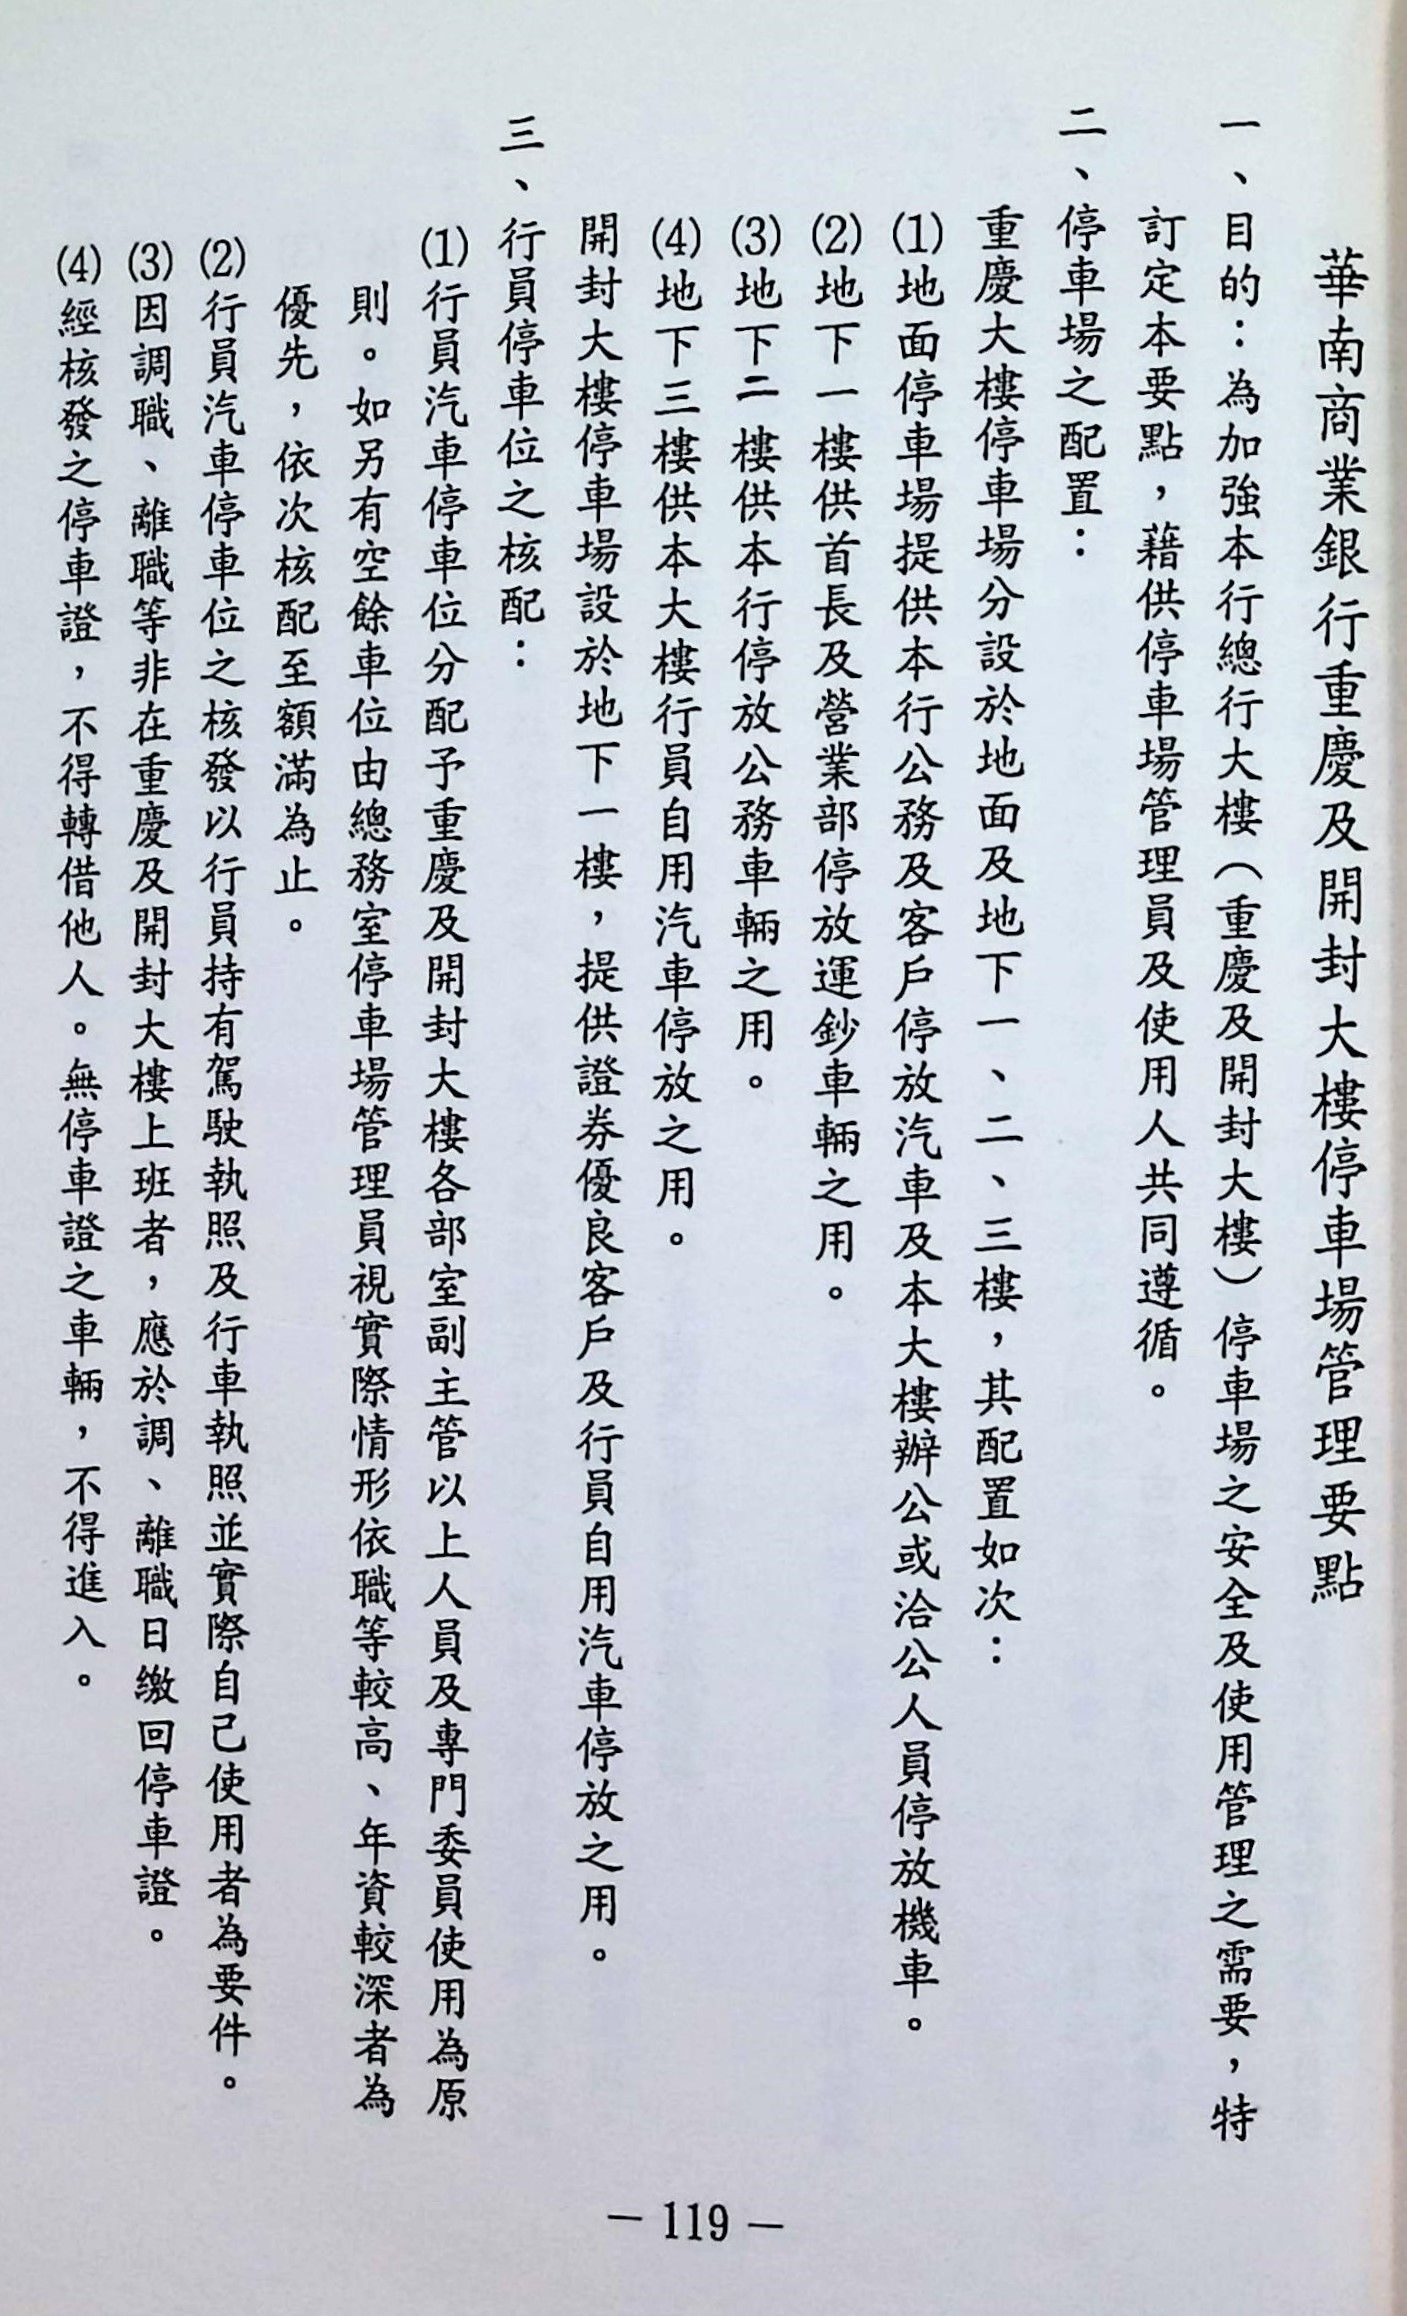 華南商業銀行重慶及開封大樓停車場管理要點
一、目的：為加強本行總行大樓（重慶及開封大樓）停車場之安全及使用管理之需要，特
訂定本要點，藉供停車場管理員及使用人共同遵循。
二、停車場之配置：
重慶大樓停車場分設於地面及地下一、二、三樓，其配置如次：
(1)地面停車場提供本行公務及客戶停放汽車及本大樓辦公或洽公人員停放機車。
(2)地下一樓供首長及營業部停放運鈔車輛之用。
(3)地下二樓供本行停放公務車輛之用。
(4)地下三樓供本大樓行員自用汽車停放之用。
開封大樓停車場設於地下一樓，提供證券優良客戶及行員自用汽車停放之用。
三、行員停車位之核配：
(1)行員汽車停車位分配予重慶及開封大樓各部室副主管以上人員及專門委員使用為原
則。如另有空餘車位由總務室停車場管理員視實際情形依職等較高、年資較深者為
優先，依次核配至額滿為止。
(2)行員汽車停車位之核發以行員持有駕駛執照及行車執照並實際自己使用者為要件。
(3)因調職、離職等非在重慶及開封大樓上班者，應於調、離職日繳回停車證。
(4)經核發之停車證，不得轉借他人。無停車證之車輛，不得進入。
— 119 —